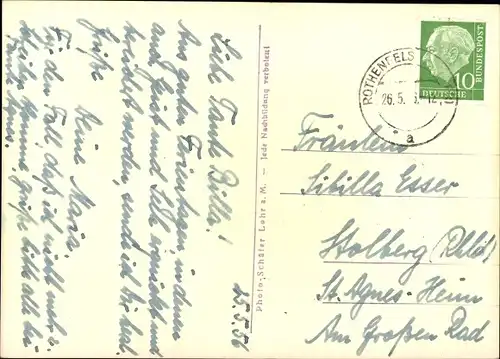 25.5.56
Liebe Tante Billa!
Aus guten Feiertagen, in denen
auch Geist und Seele erquickt und
werden, sende ich Dir herzl.
Grüße
Deine Maria.
Für den Fall, daß ich nicht mehr z.
Schreiben komme, grüße bitte alle bei
Tante
Photo: Schäfer Lohr a. M. — Jede Nachbildung verboten!
ROTHENFELS
26.5.
a
10
DEUTSCHE
BUNDESPOST
Fräulein
Sibilla Esser
Stolberg (Rhld)
St. Agnes-Heim
Am Großen Rad